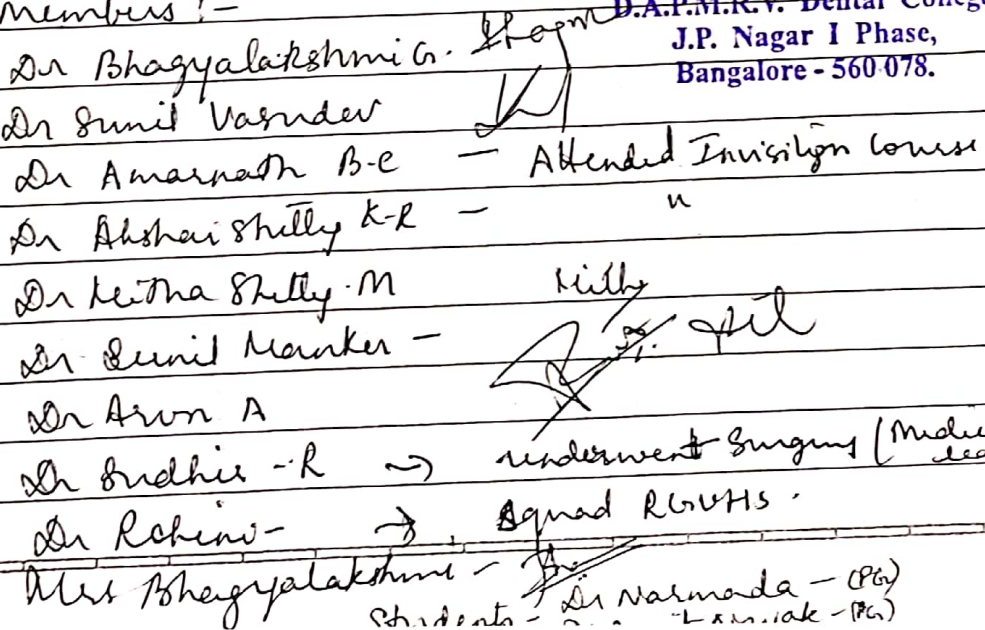 Members :-
D.A.P.M.R.V. Dental College
J.P. Nagar I Phase,
Bangalore - 560 078.
Dr Bhagyalakshmi G.
Dr Sunil Vasudev
Dr Amarnath B-C — Attended Invisilign Course
Dr Akshai Shetty K-R — "
Dr Shetty . M
Dr Sunil —
Dr Arun A
Dr Sudhir - R → underwent Surgery (
Dr Rohini - → Squad RGUHS .
Mrs Bhagyalakshmi -
Students - Dr Narmada - (PG)
- (PG)